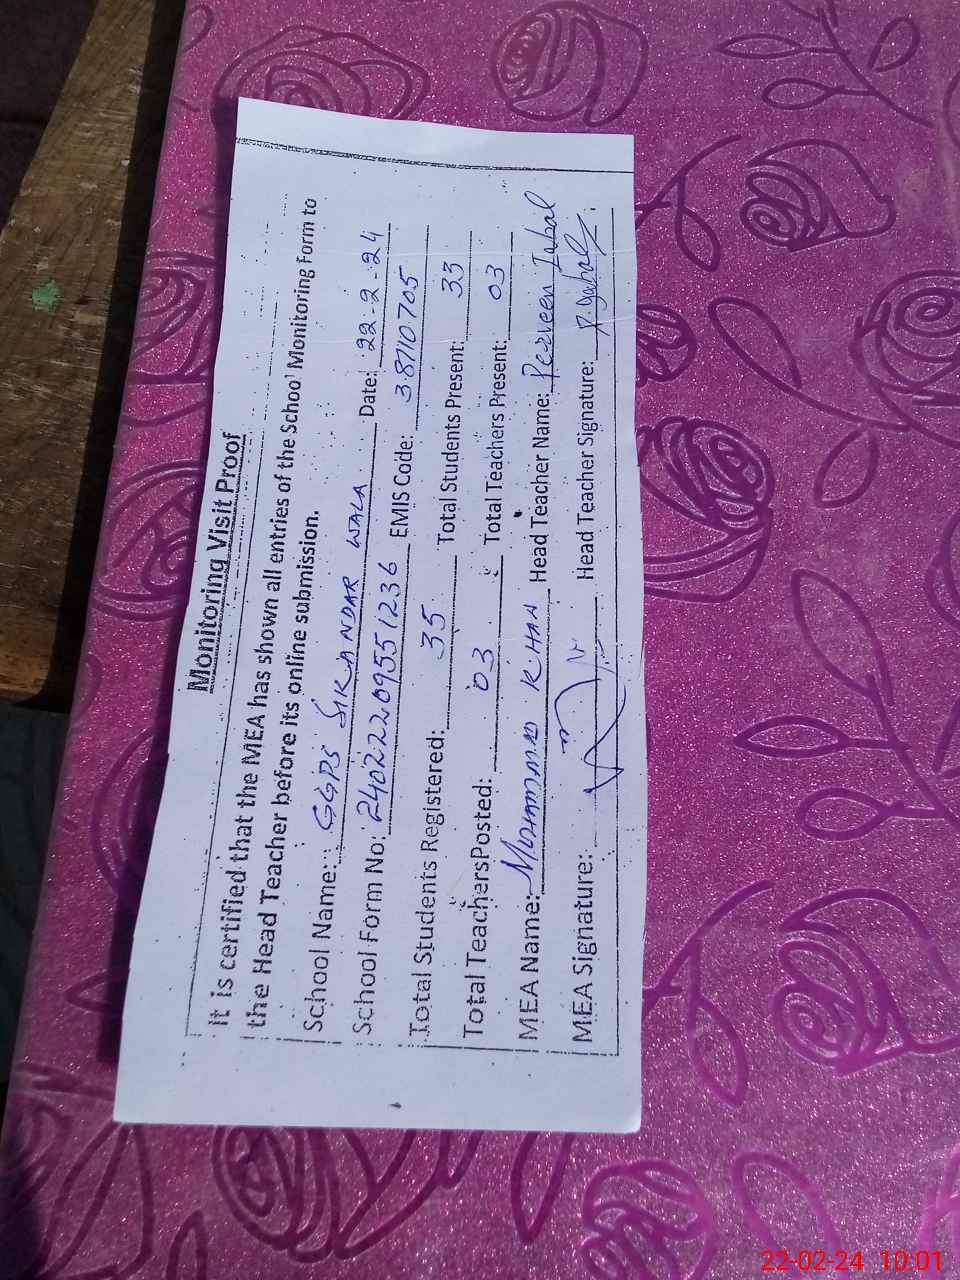 Monitoring Visit Proof
It is certified that the MEA has shown all entries of the School Monitoring Form to
the Head Teacher before its online submission.
School Name: GGPS SIKANDAR WALA Date: 22-2-24
School Form No: 240222209551236 EMIS Code: 38110705
Total Students Registered: 35 Total Students Present: 33
Total TeachersPosted: 03 Total Teachers Present: 03
MEA Name: MUHAMMAD KHAN Head Teacher Name: Perveen Iqbal
MEA Signature: Head Teacher Signature: P. Iqbal
22-02-24 10:01